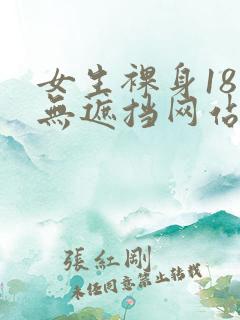 女生裸身18
無遮挡网站
張紅剛
未经同意禁止转载